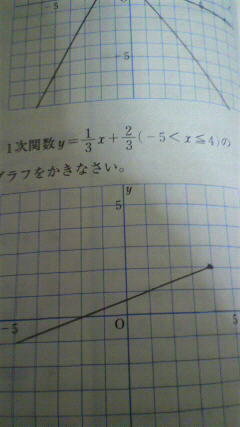 -5
5
-5
1次関数 y = 1/3 x + 2/3 (-5 < x ≦ 4) の
グラフをかきなさい。
y
5
-5
O
5